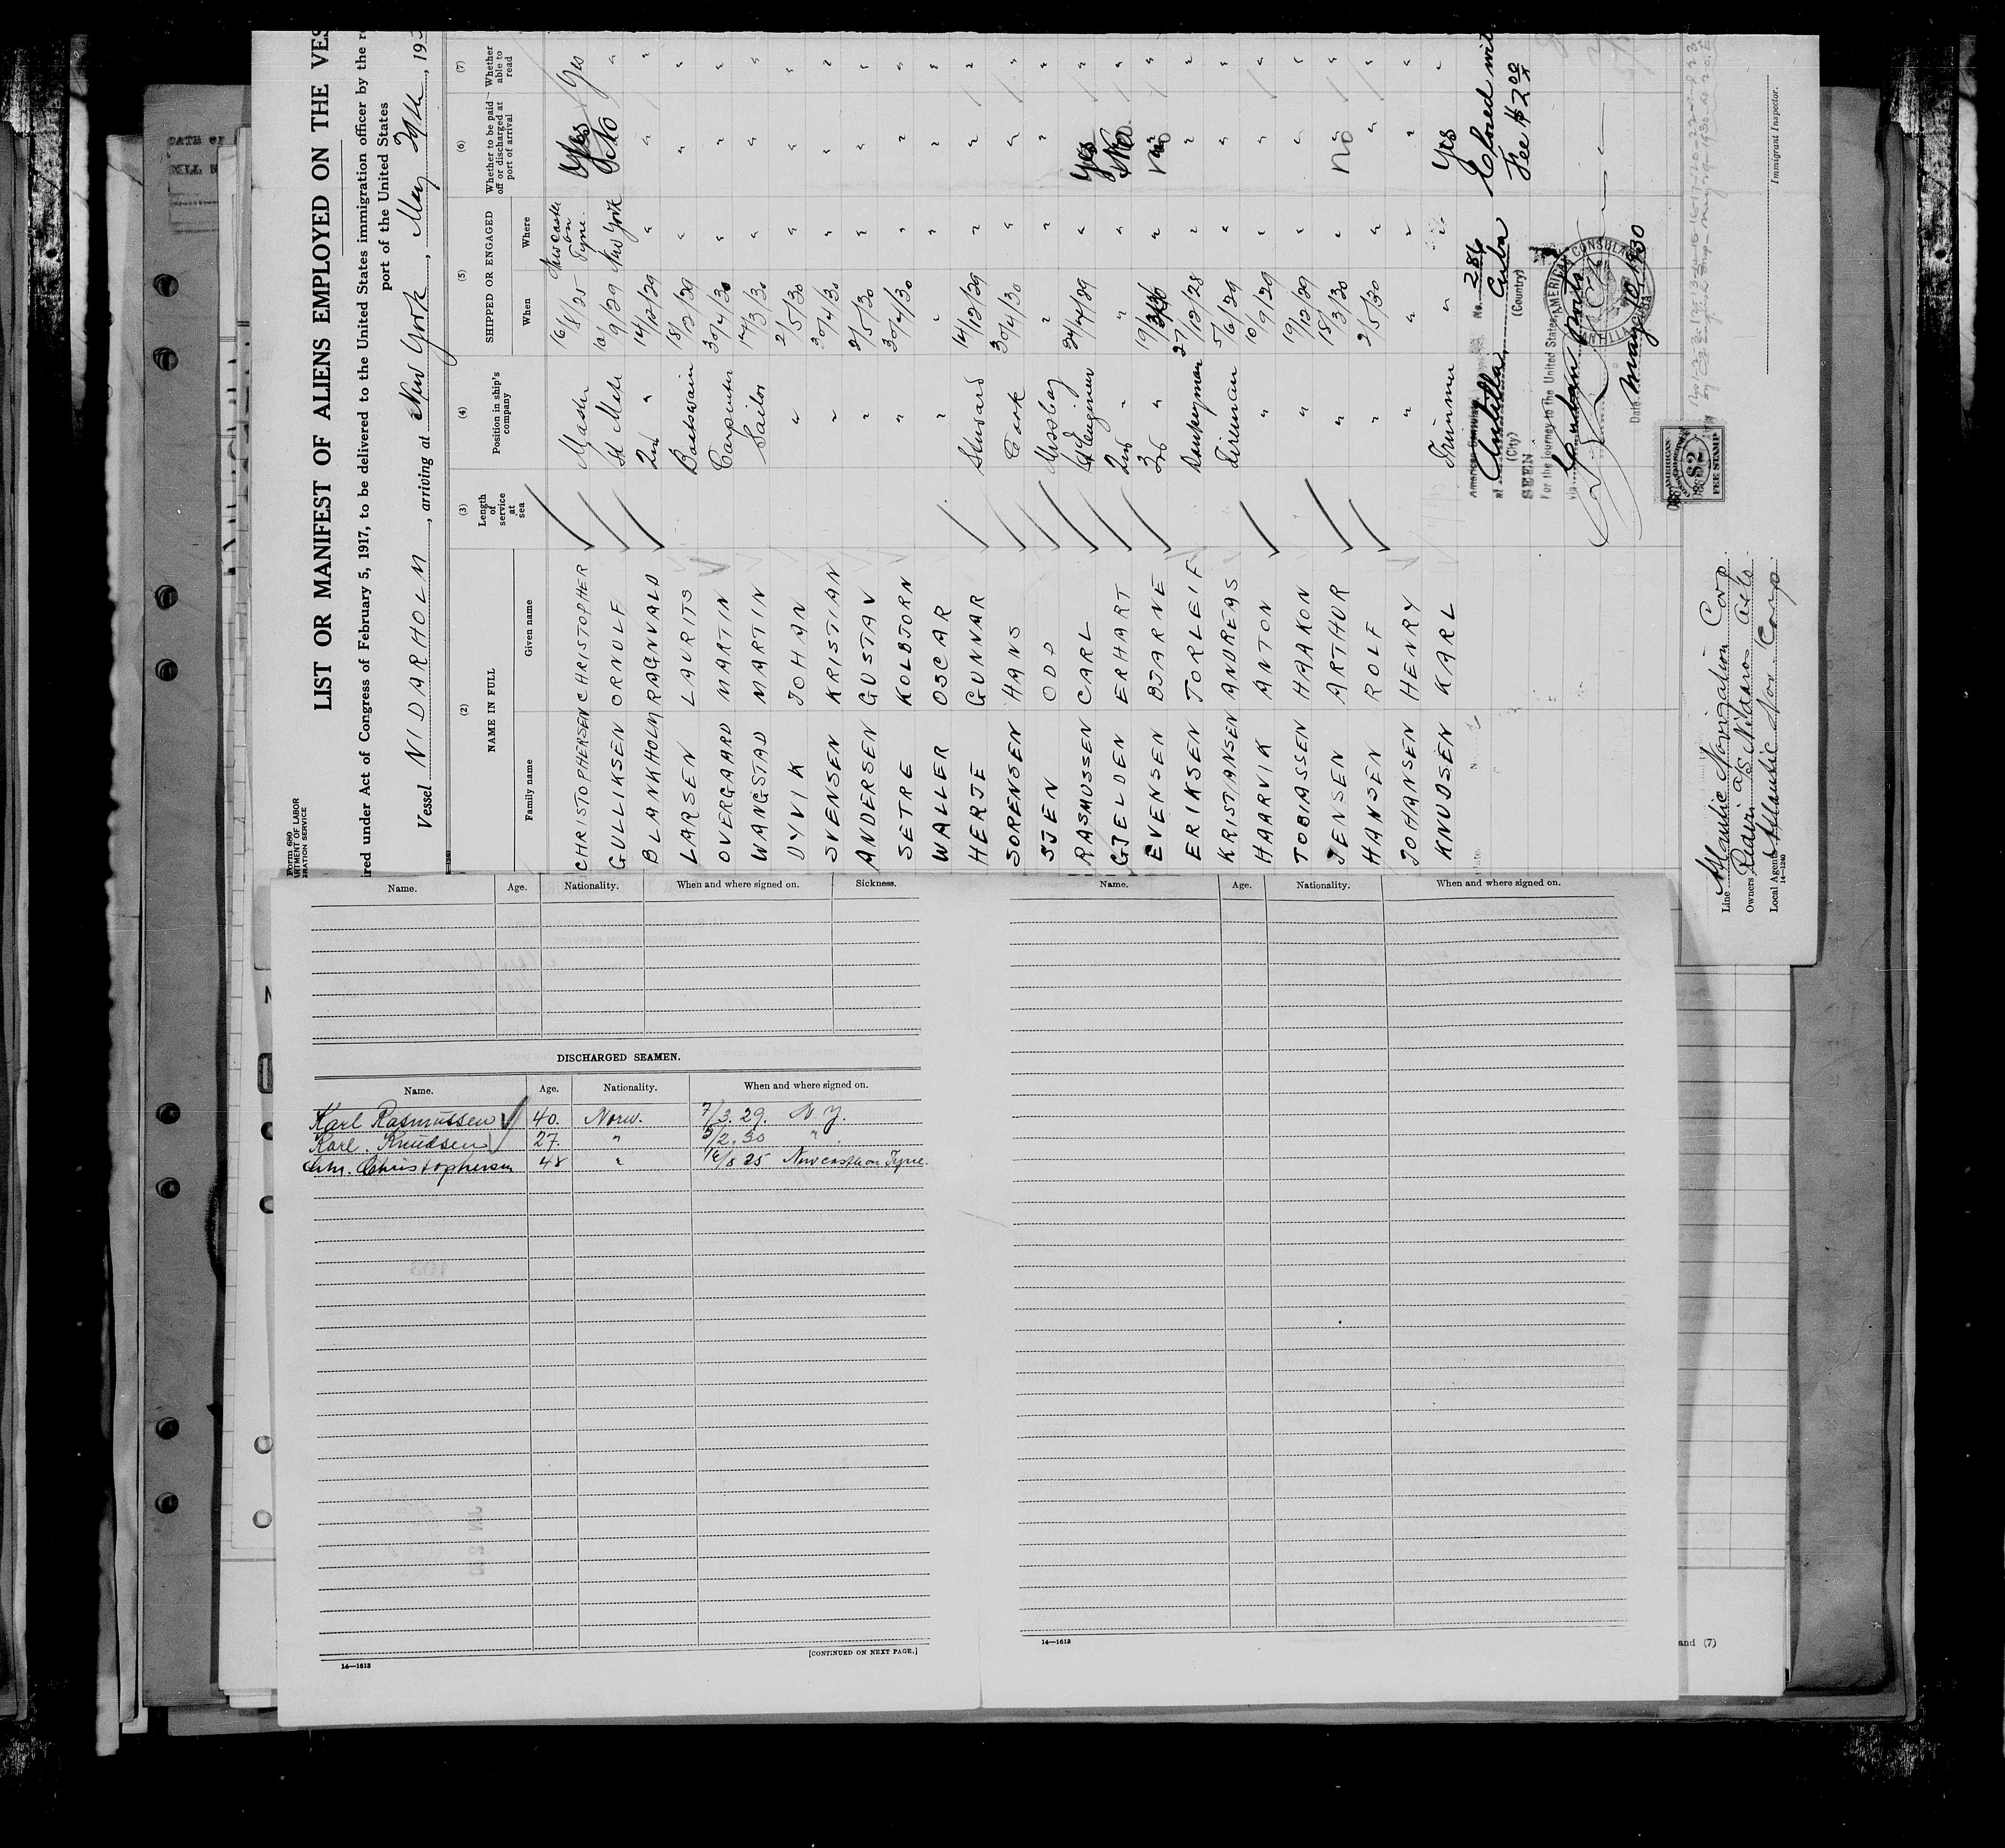 Form 680
ARTMENT OF LABOR
GRATION SERVICE
LIST OR MANIFEST OF ALIENS EMPLOYED ON THE VES
ired under Act of Congress of February 5, 1917, to be delivered to the United States immigration officer by the re
port of the United States
Vessel NIDARHOLM, arriving at New York, May 19th, 193
(2) (3) (4) (5) (6) (7)
NAME IN FULL Length of service at sea Position in ship's company SHIPPED OR ENGAGED Whether to be paid off or discharged at port of arrival Whether able to read
Family name Given name When Where
CHRISTOPHERSEN CHRISTOPHER Master 16/8/25 Newcastle on Tyne. Yes Yes
GULLIKSEN ORNULF 1st Mate 10/9/29 New York No "
BLANKHOLM RAGNVALD 2nd " 14/12/29 " " "
LARSEN LAURITS Boatswain 18/12/29 " " "
OVERGAARD MARTIN Carpenter 30/4/30 " " "
WANGSTAD MARTIN Sailor 17/3/30 " " "
DYVIK JOHAN " 2/5/30 " " "
SVENSEN KRISTIAN " 30/4/30 " " "
ANDERSEN GUSTAV " 2/5/30 " " "
SETRE KOLBJORN " 30/4/30 " " "
WALLER OSCAR " " " " "
HERJE GUNNAR Steward 14/12/29 " " "
SORENSEN HANS Cook 30/4/30 " " "
SJEN ODD Messboy " " " "
RASMUSSEN CARL 1st Engineer " Yes "
GJELDEN ERHART 2nd " " " No "
EVENSEN BJARNE 3rd " " No "
ERIKSEN TORLEIF Donkeyman 27/12/28 " " "
KRISTIANSEN ANDREAS Fireman 5/6/29 " " "
HAARVIK ANTON " 10/9/29 " " "
TOBIASSEN HAAKON " 19/12/29 " " "
JENSEN ARTHUR " 18/3/30 " No "
HANSEN ROLF " 2/5/30 " " "
JOHANSEN HENRY " " " " "
KNUDSEN KARL Trimmer " " Yes "
American Consulate No. 286 Closed wit
at Antilla, Cuba Fee $2.00
(City) (Country)
SEEN
For the journey to the United States
via Cuban Ports
AMERICAN CONSULA
Date May 10 1930
AMERICAN
$2
FEE STAMP
Line Atlantic Navigation Corp.
Owners
Local Agents Atlantic Nav. Corp
14—1240
Immigrant Inspector.
Name. Age. Nationality. When and where signed on. Sickness.
DISCHARGED SEAMEN.
Name. Age. Nationality. When and where signed on.
Karl Rasmussen 40. Norw. 7/3.29. N.Y.
Karl Knudsen 27. " 5/2.30 " .
Chr. Christophersen 48 " 16/8 25 Newcastle on Tyne.
14—1613
[CONTINUED ON NEXT PAGE.]
Name. Age. Nationality. When and where signed on.
14—1613
and (7)